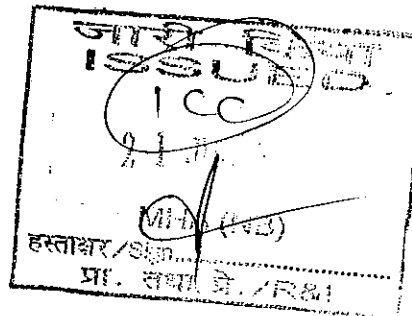 जारी किया
ISSUED
1 CC
21 J
MHA (NB)
हस्ताक्षर/Sign..............
प्रा. तथा प्रे./R&I